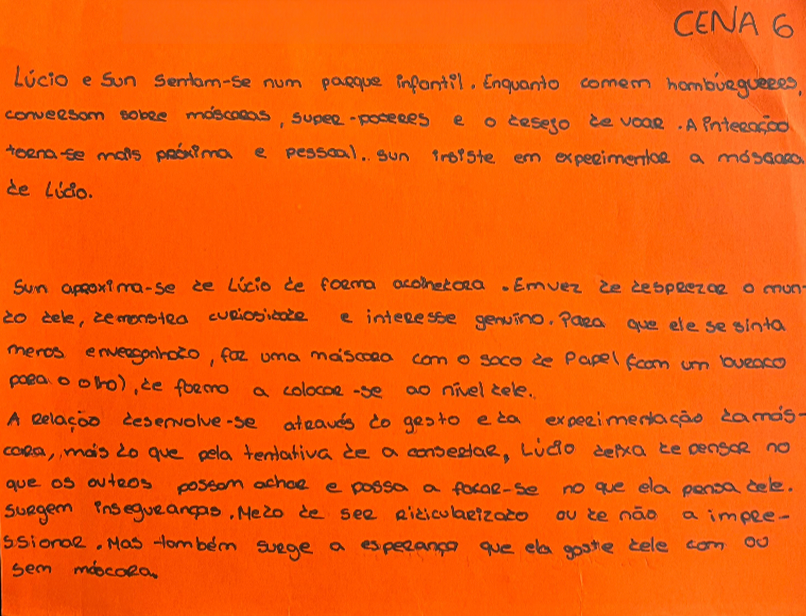 CENA 6
Lúcio e Sun sentam-se num parque infantil. Enquanto comem hambúrgueres,
conversam sobre máscaras, super-poderes e o desejo de voar. A interação
torna-se mais próxima e pessoal.. Sun insiste em experimentar a máscara
de Lúcio.
Sun aproxima-se de Lúcio de forma acolhedora. Em vez de desprezar o mun-
do dele, demonstra curiosidade e interesse genuíno. Para que ele se sinta
menos envergonhado, faz uma máscara com o saco de papel (com um buraco
para o olho), de forma a colocar-se ao nível dele.
A relação desenvolve-se através do gesto e da experimentação da más-
cara, mais do que pela tentativa de a consertar, Lúcio deixa de pensar no
que os outros possam achar e passa a focar-se no que ela pensa dele.
Surgem inseguranças. Medo de ser ridicularizado ou de não a impre-
ssionar. Mas também surge a esperança que ela goste dele com ou
sem máscara.